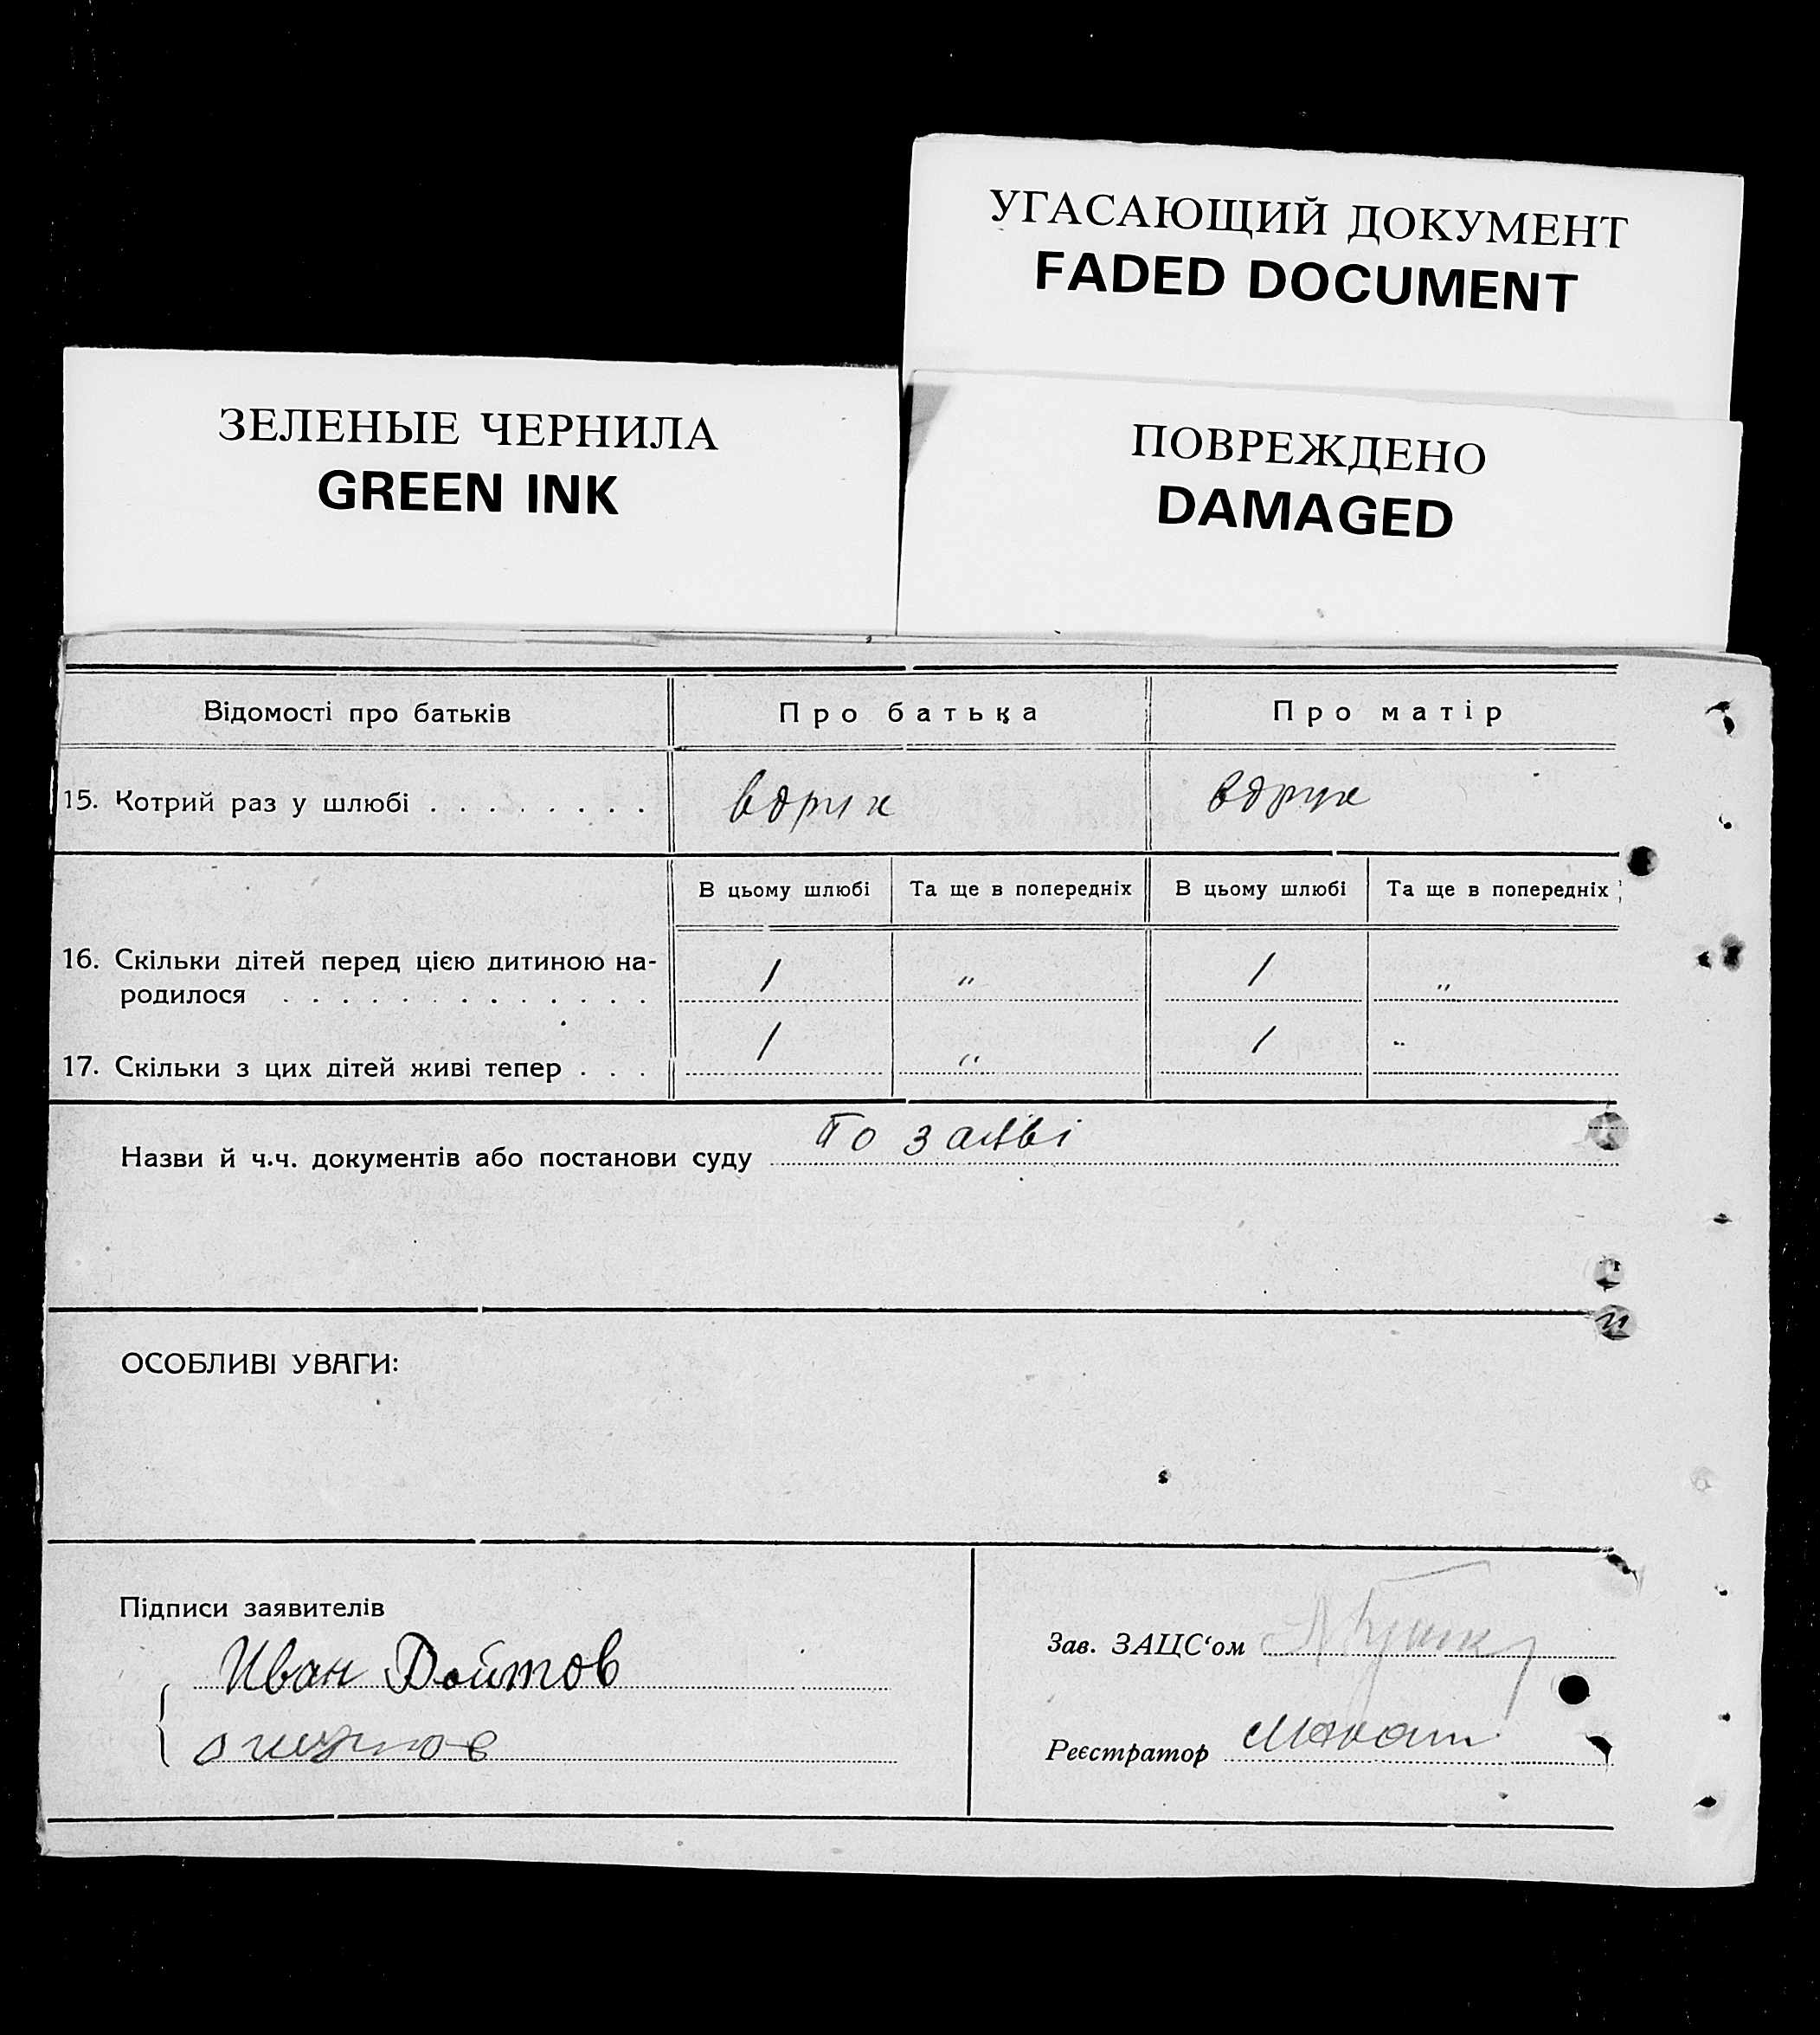 УГАСАЮЩИЙ ДОКУМЕНТ
FADED DOCUMENT
ЗЕЛЕНЫЕ ЧЕРНИЛА
GREEN INK
ПОВРЕЖДЕНО
DAMAGED
Відомості про батьків Про батька Про матір
15. Котрий раз у шлюбі . . . . . . . .
В цьому шлюбі Та ще в попередніх В цьому шлюбі Та ще в попередніх
16. Скільки дітей перед цією дитиною на- 1 " 1 "
родилося . . . . . . . . . . . . .
17. Скільки з цих дітей живі тепер . . . 1 " 1 "
Назви й ч.ч. документів або постанови суду по заяві
ОСОБЛИВІ УВАГИ:
Підписи заявителів
Зав. ЗАЦС‘ом
Иван Войтов
Реєстратор